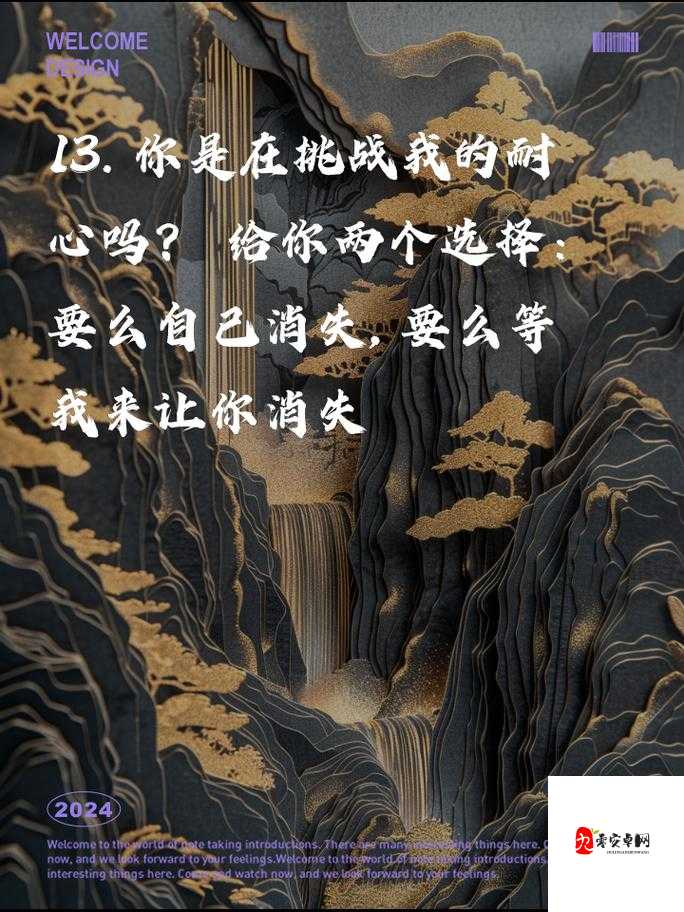 WELCOME
DESIGN
13. 你是在挑战我的耐
心吗？ 给你两个选择：
要么自己消失，要么等
我来让你消失
2024
Welcome to the world of note taking introductions. There are many interesting things here. C
now, and we look forward to your feelings.Welcome to the world of note taking introductions
interesting things here. Come and watch now, and we look forward to your feelings.
零安卓网